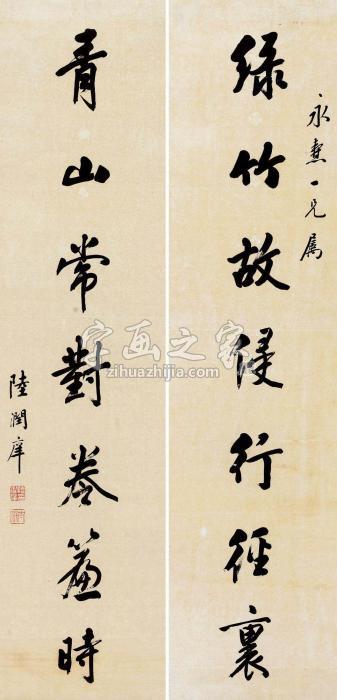 永意一兄属
绿竹故侵行徑裏
青山常對卷簾時
陸潤庠
字画之家
zihuazhijia.com